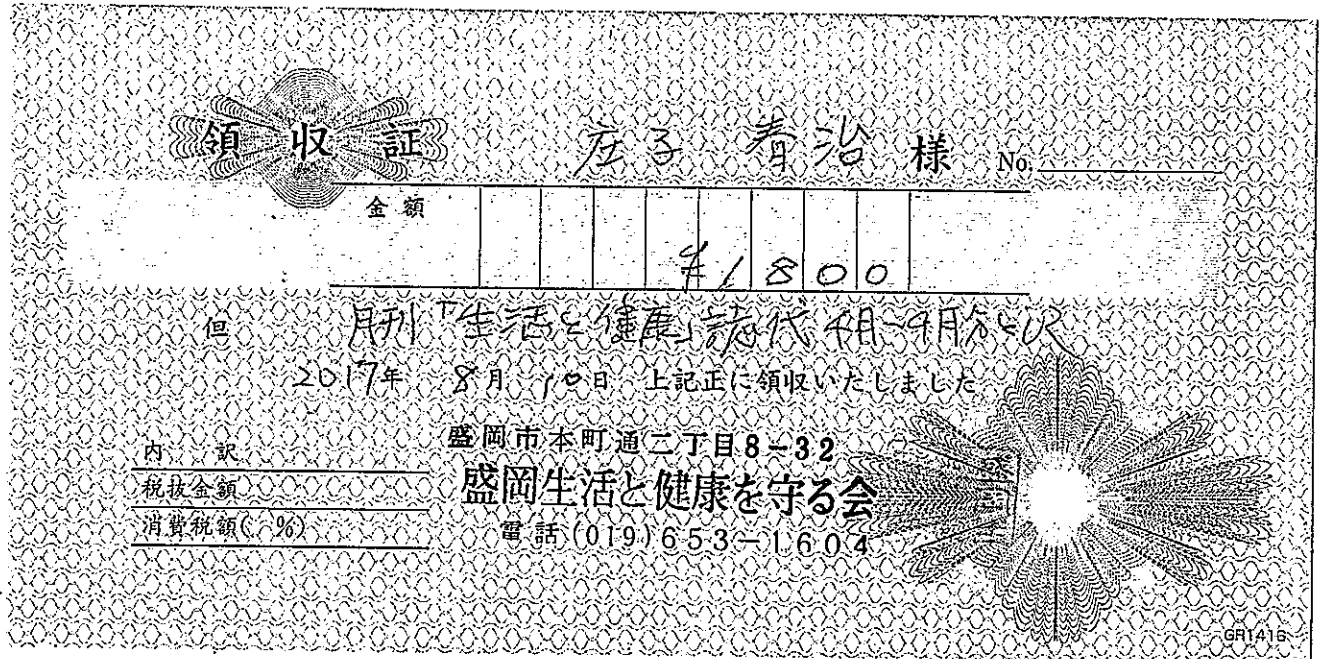 領収証
庄子 春治 様 No.
金額
¥1800
但 月刊「生活と健康」誌代 4月~9月分として
2017年 8月 10日 上記正に領収いたしました
内 訳
税抜金額
消費税額( %)
盛岡市本町通二丁目8-32
盛岡生活と健康を守る会
電話(019)653-1604
GR1416